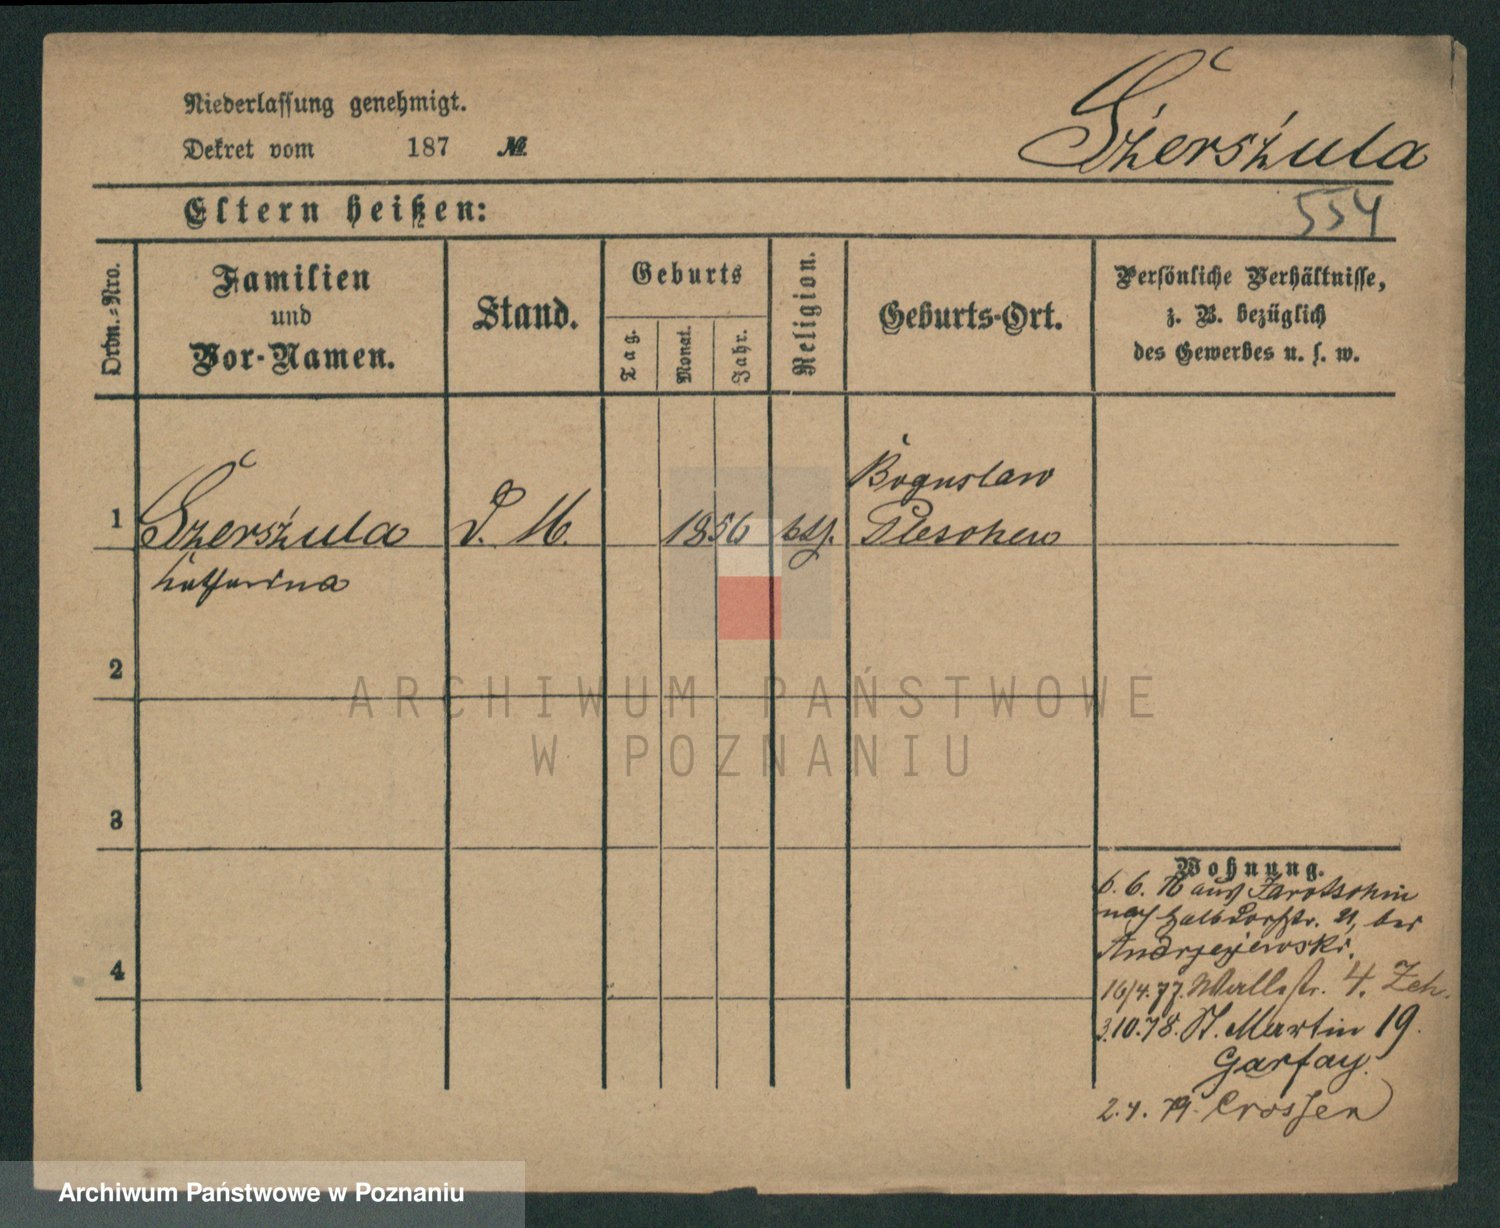 Niederlassung genehmigt.
Dekret vom 187 №
Szerszula
554
Eltern heißen:
Ordn.-Nro.
Familien
und
Vor-Namen.
Stand.
Geburts
Tag.
Monat.
Jahr.
Religion.
Geburts-Ort.
Persönliche Verhältnisse,
z. B. bezüglich
des Gewerbes u. s. w.
1
Szerszula
Katharina
D. M.
1856
kth.
Boguslaw
Pleschew
2
3
4
Wohnung.
6. 6. 76 aus Jarotschin
nach Halbdorfstr. 21, bei
Andrzejewski.
16/4. 77. Wallstr. 4. Zeh.
3.10.78. St. Martin 19.
Garfay.
2. 4. 79. Crossen
ARCHIWUM PAŃSTWOWE
W POZNANIU
Archiwum Państwowe w Poznaniu